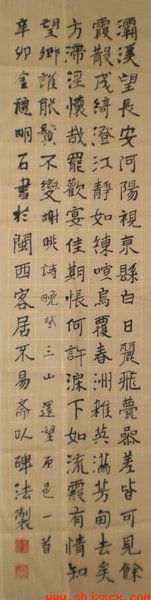 灞涘望長安河陽視京縣白日麗飛甍參差皆可見餘
霞散成綺澄江靜如練喧鳥覆春洲雜英滿芳甸去矣
方滯淫懷哉罷歡宴佳期悵何許淚下如流霰有情知
望鄉誰能鬒不變謝朓詩晚登三山還望京邑一首
辛卯金穗明石書於閩西客居不易齋以碑法製